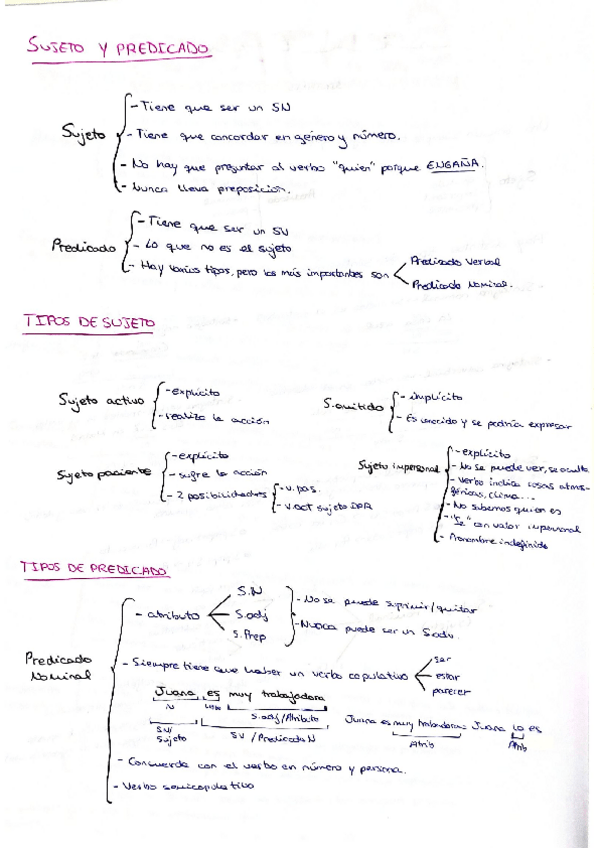 SUJETO Y PREDICADO
Sujeto
- Tiene que ser un SN
- Tiene que concordar en género y número.
- No hay que preguntar al verbo "quien" porque ENGAÑA.
- Nunca lleva preposición.
Predicado
- Tiene que ser un SV
- Lo que no es el sujeto
- Hay varios tipos, pero los más importantes son
Predicado Verbal
Predicado Nominal.
TIPOS DE SUJETO
Sujeto activo
- explícito
- realiza la acción
S. omitido
- implícito
- Es conocido y se podría expresar
Sujeto paciente
- explícito
- sufre la acción
- 2 posibilidades
- v. pas.
- v. act sujeto
Sujeto impersonal
- explícito
- No se puede ver, se oculta
- Verbo indica cosas atmos-
féricas, clima...
- No sabemos quien es
- "Se" con valor impersonal
- Pronombre indefinido
TIPOS DE PREDICADO
Predicado
Nominal
- atributo
S.N
S.adj
S.Prep
- No se puede suprimir/quitar
- Nunca puede ser un S.adv.
- Siempre tiene que haber un verbo copulativo
ser
estar
parecer
Juana es muy trabajadora
N
S.adj/Atributo
SN/
Sujeto
SV/Predicado N
Juana es muy trabajadora = Juana lo es
Atrib
Atrib
- Concuerda con el verbo en número y persona.
- Verbo semicopulativo